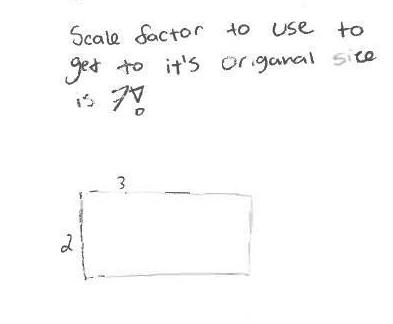 Scale factor to use to
get to it's origanal size
is 7!
3
2